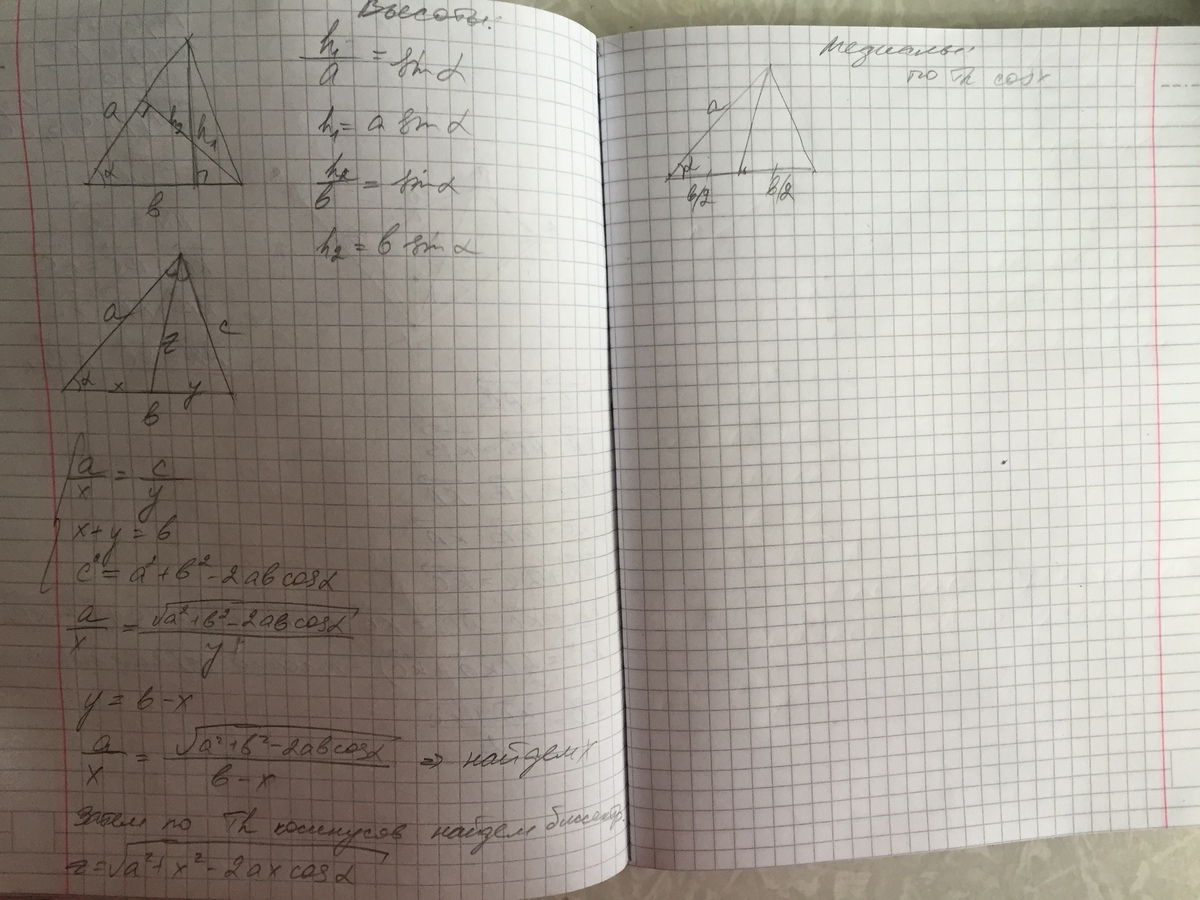 Высоты:
a
h₂
h₁
α
в
h₁/a = sin α
h₁ = a sin α
h₂/в = sin α
h₂ = в sin α
a
z
c
α
x
y
в
a/x = c/y
x+y = в
c² = a²+в²-2aв cosα
a/x = √(a²+в²-2aв cosα)/y
y = в-x
a/x = √(a²+в²-2aв cosα)/(в-x) ⇒ найдем x
Затем по Th косинусов найдем биссектр.
z=√(a²+x²-2ax cosα)
Медианы:
по Th cosx
a
α
в/2
в/2